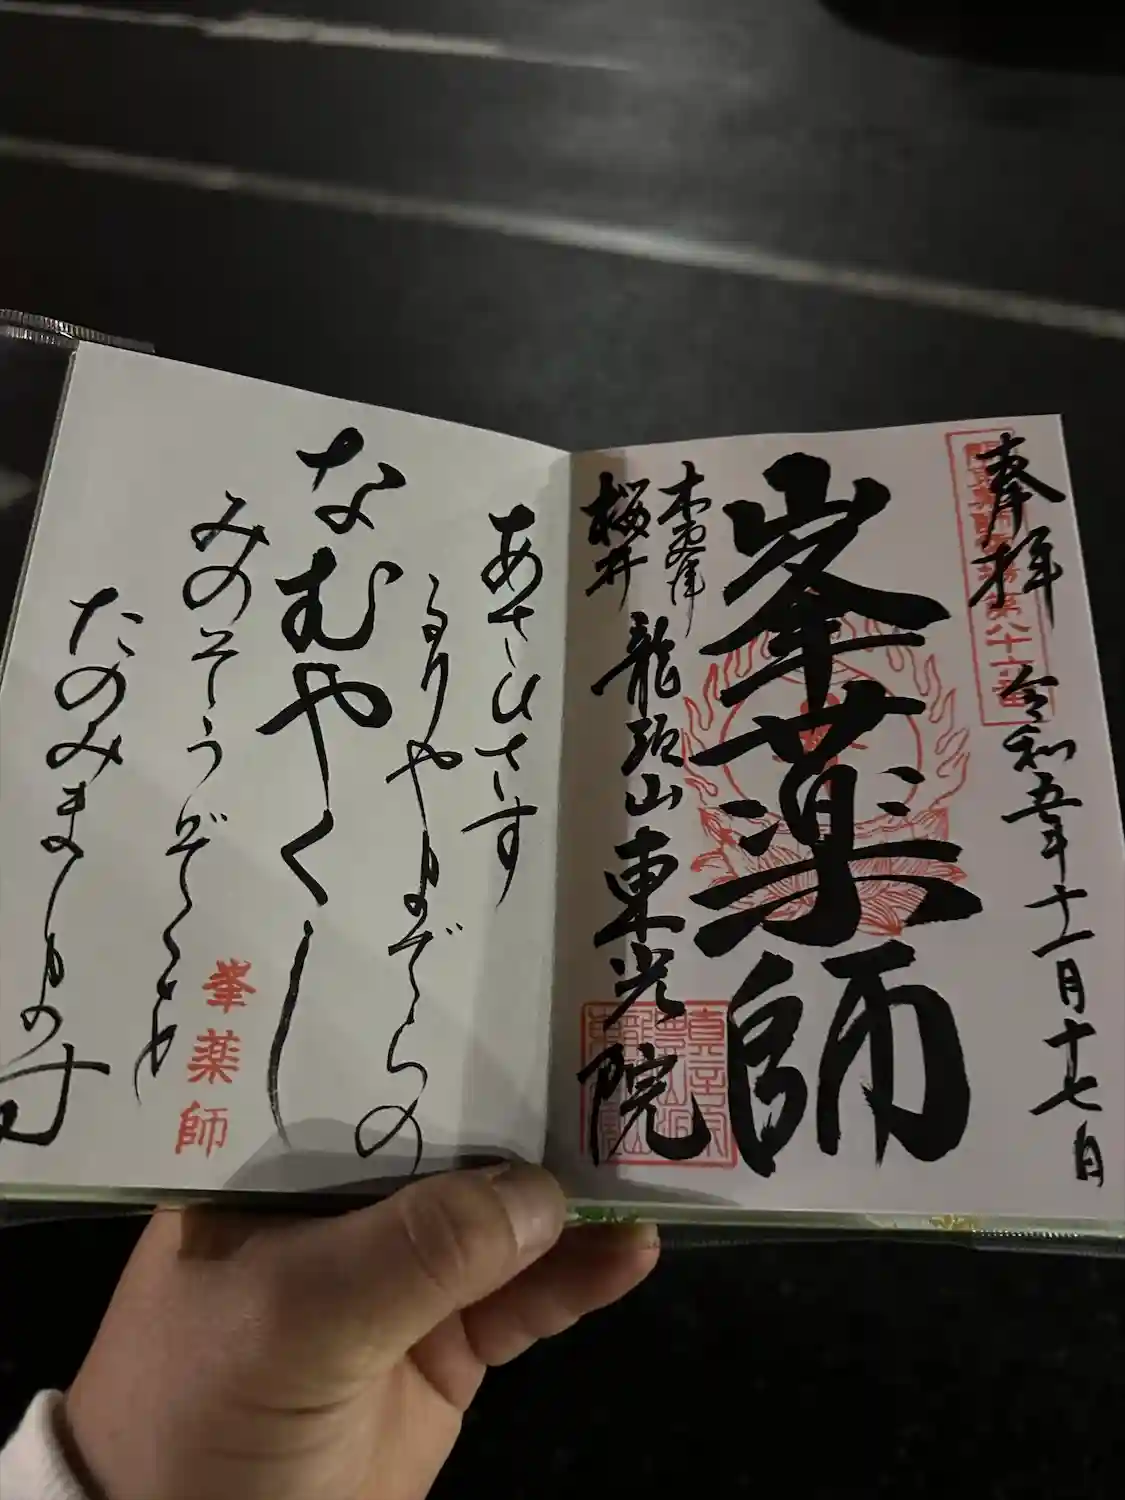 奉拝
令和五年十一月十七日
峯薬師
木更津
桜井
龍頭山東光院
あさひさす
るりやまぞらの
なむやくし
みのそうぞくや
たのみまします
峯薬師